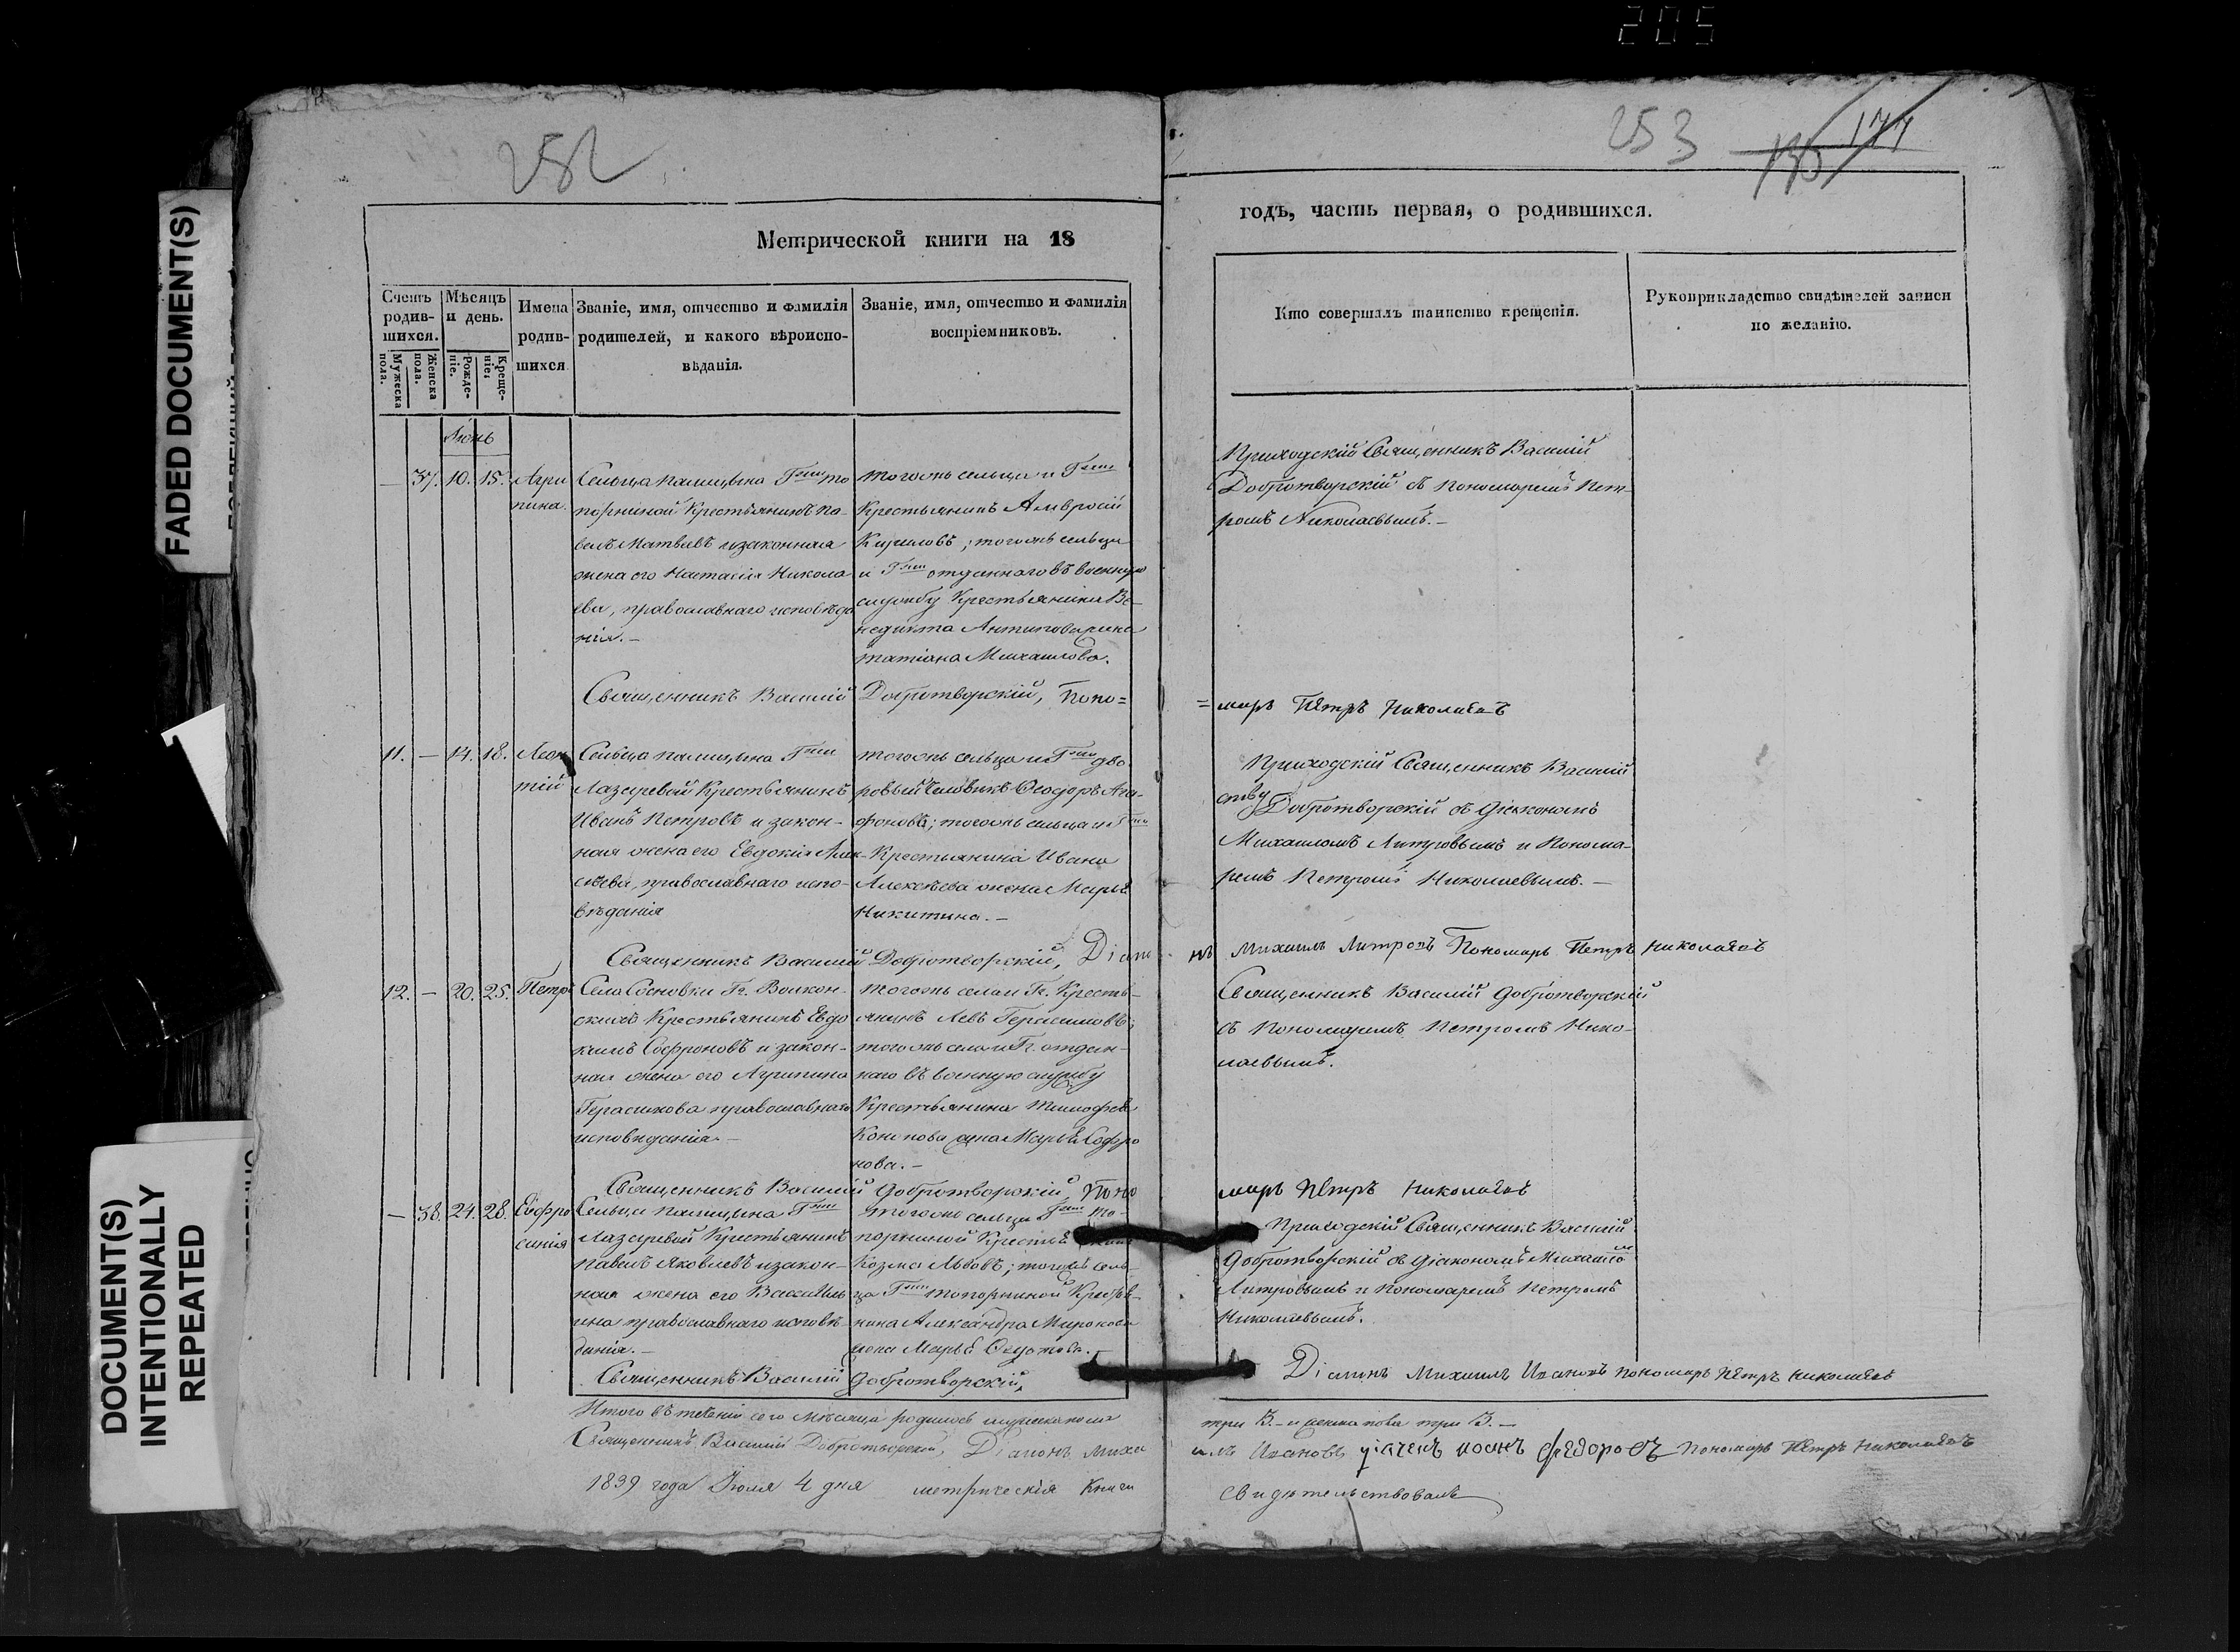 205
252
253
177
FADED DOCUMENT(S)
DOCUMENT(S)
INTENTIONALLY
REPEATED
Метрической книги на 18
годъ, часть первая, о родившихся.
Счетъ родив-шихся.
Мужеска пола.
Женска пола.
Мѣсяцъ и день.
Рожде-ніе.
Креще-ніе.
Имена родив-шихся
Званіе, имя, отчество и фамилія родителей, и какого вѣроиспо-вѣданія.
Званіе, имя, отчество и фамилія воспріемниковъ.
Кто совершалъ таинство крещенія.
Рукоприкладство свидѣтелей записи по желанію.
Іюнь
— 37. 10. 15. Агри
пина.
Сельца Палицына Гжи То
порниной Крестьянинъ Па-
велъ Матвѣевъ и законная
жена его Настасія Никола
ева, православнаго исповѣда
нія. —
тогожъ сельца и Гжи
Крестьянинъ Амвросій
Кириловъ; тогожъ сельца
и Гжи отданнаго въ военную
службу Крестьянина Ве-
недикта Антипова жена
Татіана Михаилова.
Приходскій Священникъ Василій
Добротворскій съ Пономаремъ Пет-
ромъ Николаевымъ. —
Священникъ Василій Добротворскій, Поно=
=марь Петръ Николаевъ
11. — 14. 18. Леон
тій
Сельца Палицына Гжи
Лазаревой Крестьянинъ
Иванъ Петровъ и закон-
ная жена его Евдокія Алек-
сѣева, православнаго испо-
вѣданія
тогожъ сельца и Гжи дво
ровый человѣкъ Ѳеодоръ Ага-
фоновъ; тогожъ сельца и Гжи
Крестьянина Ивана
Алексѣева жена Марья
Никитина. —
Приходскій Священникъ Василій
Добротворскій съ Діакономъ
Михаиломъ Митровымъ и Понома-
ремъ Петромъ Николаевымъ. —
Священникъ Василій Добротворскій, Діако
нъ Михаилъ Митровъ Пономарь Петръ Николаевъ
12. — 20. 25. Петръ
Села Сосновки Гг. Волкон-
скихъ Крестьянинъ Евдо
кимъ Софроновъ и закон-
ная жена его Агрипина
Герасимова православнаго
исповѣданія. —
тогожъ села и Гг. Кресть-
янинъ Левъ Герасимовъ;
тогожъ села и Гг. отдан-
наго въ военную службу
Крестьянина Тимофея
Кононова жена Марья Софро
нова. —
Священникъ Василій Добротворскій
съ Пономаремъ Петромъ Нико-
лаевымъ.
Священникъ Василій Добротворскій, Поно
марь Петръ Николаевъ
— 38. 24. 28. Евфро
синія
Сельца Палицына Гжи
Лазаревой Крестьянинъ
Павелъ Яковлевъ и закон-
ная жена его Васса Иль
ина православнаго исповѣ-
данія. —
тогожъ сельца Гжи То-
порниной Крестья
Козма Львовъ; тогожъ сель-
ца Гжи Топорниной Крестья-
нина Александра Миронова
жена Марья Ѳедотова. —
Приходскій Священникъ Василій
Добротворскій съ Діакономъ Михаиломъ
Митровымъ и Пономаремъ Петромъ
Николаевымъ.
Священникъ Василій Добротворскій,
Діаконъ Михаилъ Ивановъ пономарь Петръ Николаевъ
Итого въ теченіи сего мѣсяца родилось мужеска пола
три 3. — и женска пола три 3. —
Священникъ Василій Добротворскій, Діаконъ Миха
илъ Ивановъ Пономарь Петръ Николаевъ
1839 года Іюля 4 дня метрическія Книги
свидѣтельствовалъ